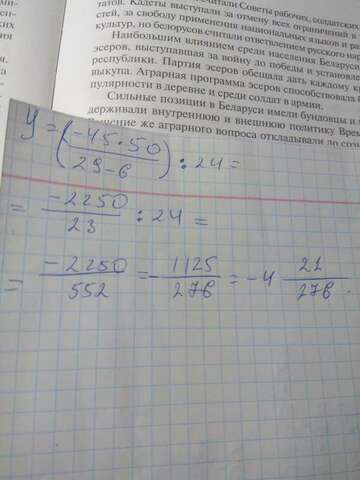 считали Советы рабочих, солдатских
татов. Кадеты выступали за отмену всех ограничений в
стей, за свободу применения национальных языков и раз
культур, но белорусов считали ответвлением русского нар
Наибольшим влиянием среди населения Беларуси
эсеров, выступавшая за войну до победы и установл
республики. Партия эсеров обещала дать каждому кр
выкупа. Аграрная программа эсеров способствовала
пулярности в деревне и среди солдат в армии.
Сильные позиции в Беларуси имели бундовцы и
держивали внутреннюю и внешнюю политику Врем
шение же аграрного вопроса откладывали до созы
y = (-45·50 / 29-6) : 24 =
= -2250 / 23 : 24 =
= -2250 / 552 = - 1125 / 276 = -4 21 / 276.